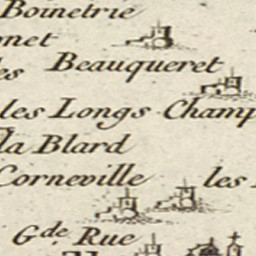 Boinetrie
onet
es Beauqueret
les Longs Champ
la Blard
Corneville les
Gde. Rue